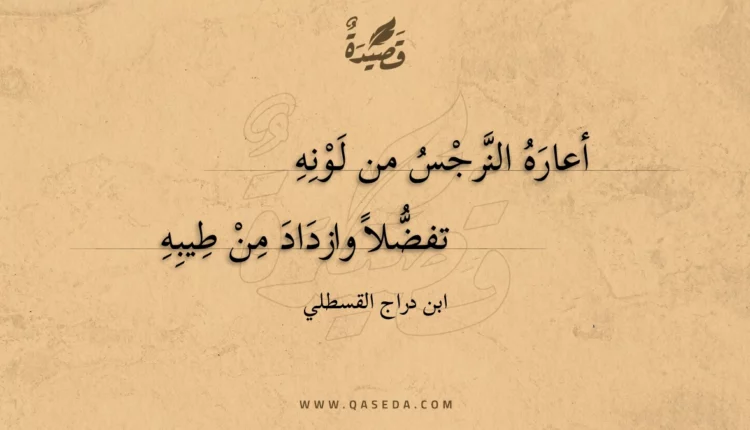 قَصِيدَةٌ
أعارَهُ النَّرجْسُ من لَوْنِهِ
تفضُّلاً وازدَادَ مِنْ طِيبِهِ
ابن دراج القسطلي
WWW.QASEDA.COM